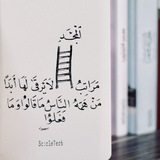 المجد
مَراتِبُ لا يَرقى لها أبدًا
مَن هَمُّهُ النَّاسُ ما قالوا وما
فعلوا